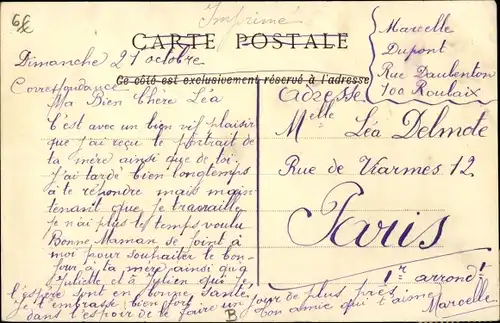 6 fx
Imprimé
CARTE POSTALE
Dimanche 21 octobre
Ce côté est exclusivement réservé à l'adresse
Marcelle
Dupont
Rue Daubenton
100 Roubaix
Correspondance
Adresse
Ma Bien Chère Léa
C'est avec un bien vif plaisir
que j'ai reçu le portrait de
ta mère ainsi que de toi,
j'ai tardé bien longtemps
à te répondre mais main
tenant que je travaille
je n'ai plus le temps voulu
Bonne Maman se joint à
moi pour souhaiter le bon-
jour à ta mère ainsi qu'à
Juliette et à Julien qui je
l'espère sont en bonne santé,
Je t'embrasse bien fort
dans l'espoir de le faire un jour de plus près
ton amie qui t'aime
Marcelle
Melle Léa Delmote
Rue de Viarmes 12,
Paris
1r arrond!
B